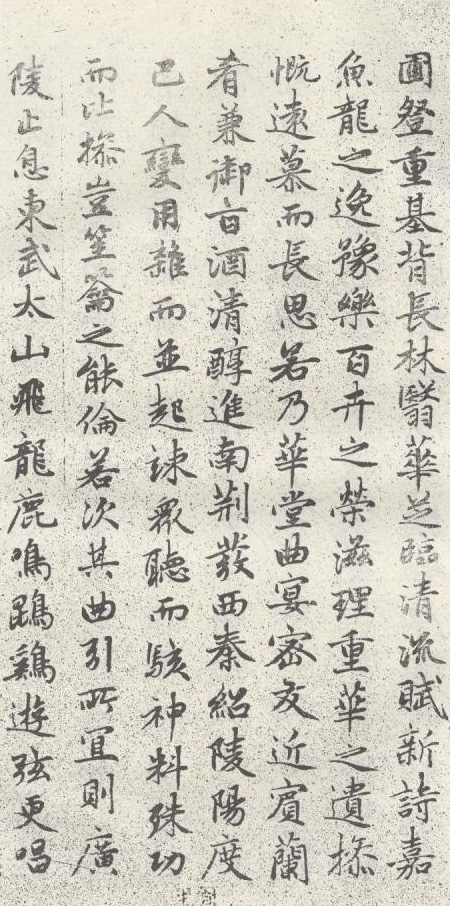 圃登重基背長林翳華芝臨清流賦新詩嘉
魚龍之逸豫樂百卉之榮滋理重華之遺操
慨遠慕而長思若乃華堂曲宴密友近賓蘭
肴兼御旨酒清醇進南荆發西秦紹陵陽度
巴人變用雜而並起竦衆聽而駭神料殊功
而比操豈笙籥之能倫若次其曲引所宜則廣
陵止息東武太山飛龍鹿鳴鵾鷄遊弦更唱